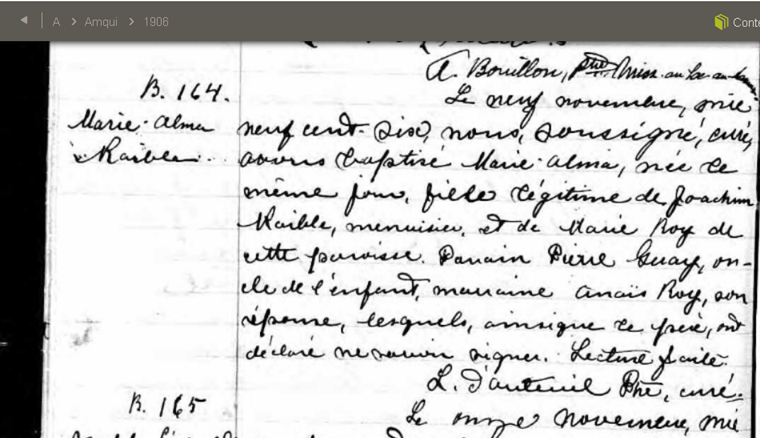 A > Amqui > 1906
Conte
A. Bouillon, Ptre Miss. au
B. 164.
Le neuf novembre, mil
Marie-Alma
neuf cent-six, nous, soussigné, curé,
Raible
avons baptisé Marie-Alma, née le
même jour, fille légitime de Joachim
Raible, menuisier, et de Marie Roy de
cette paroisse. Parrain Pierre Guay, on-
cle de l'enfant, marraine Anaïs Roy, son
épouse, lesquels, ainsi que le père, ont
déclaré ne savoir signer. Lecture faite.
L. D'Auteuil Ptre, curé.
B. 165
Le onze novembre, mil